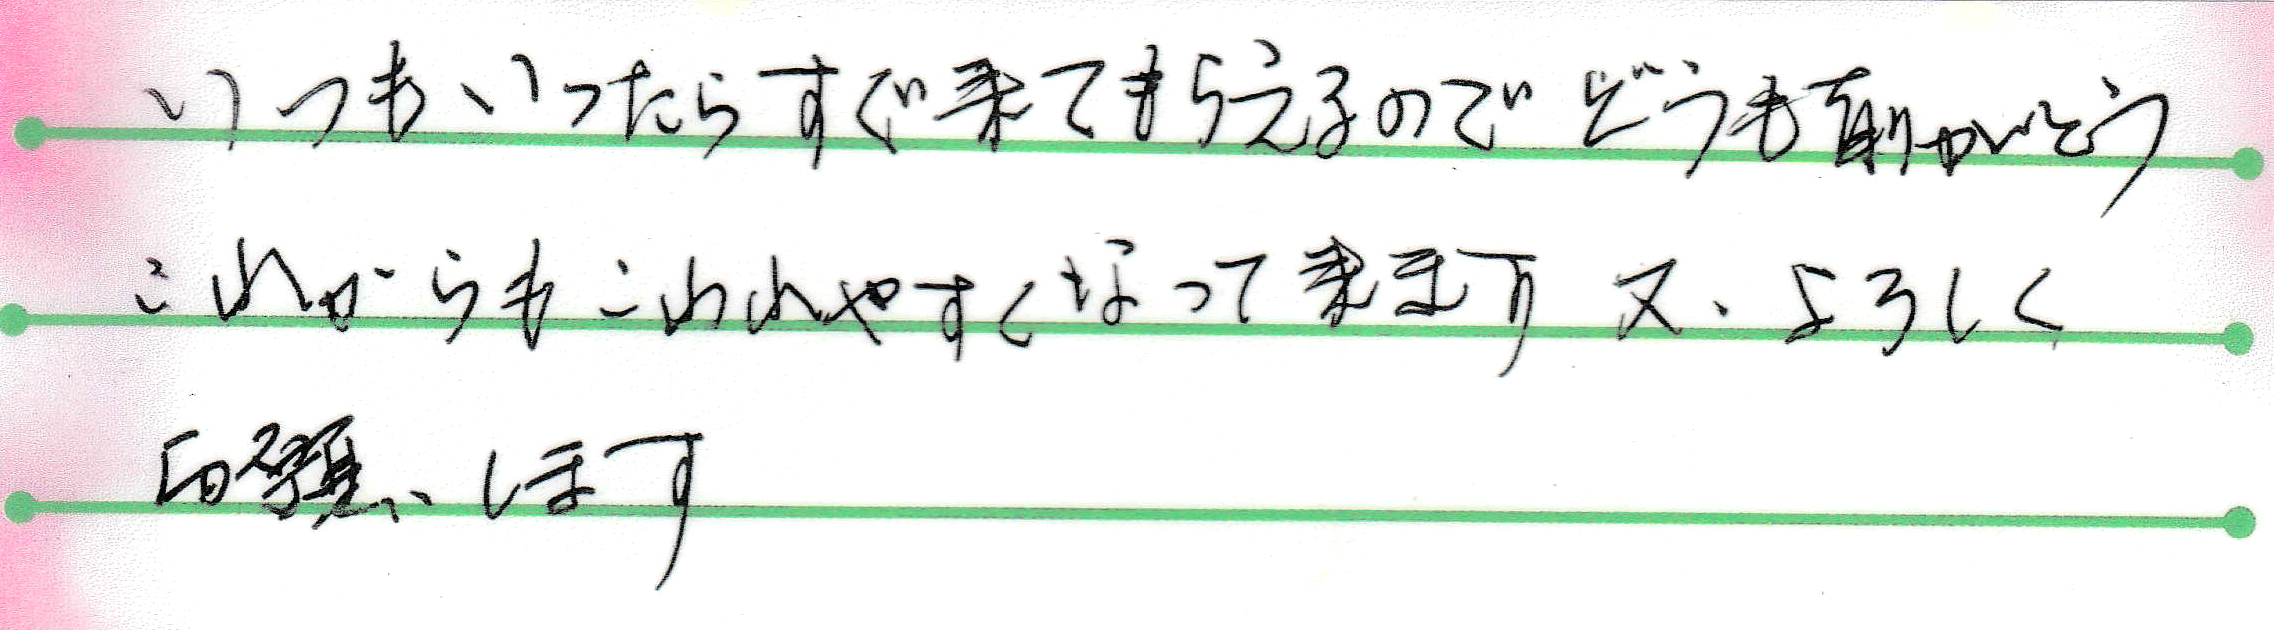 いつもいったらすぐ来てもらえるのでどうも有りがとう
これからもこわれやすくなって来ます又、よろしく
お願いします